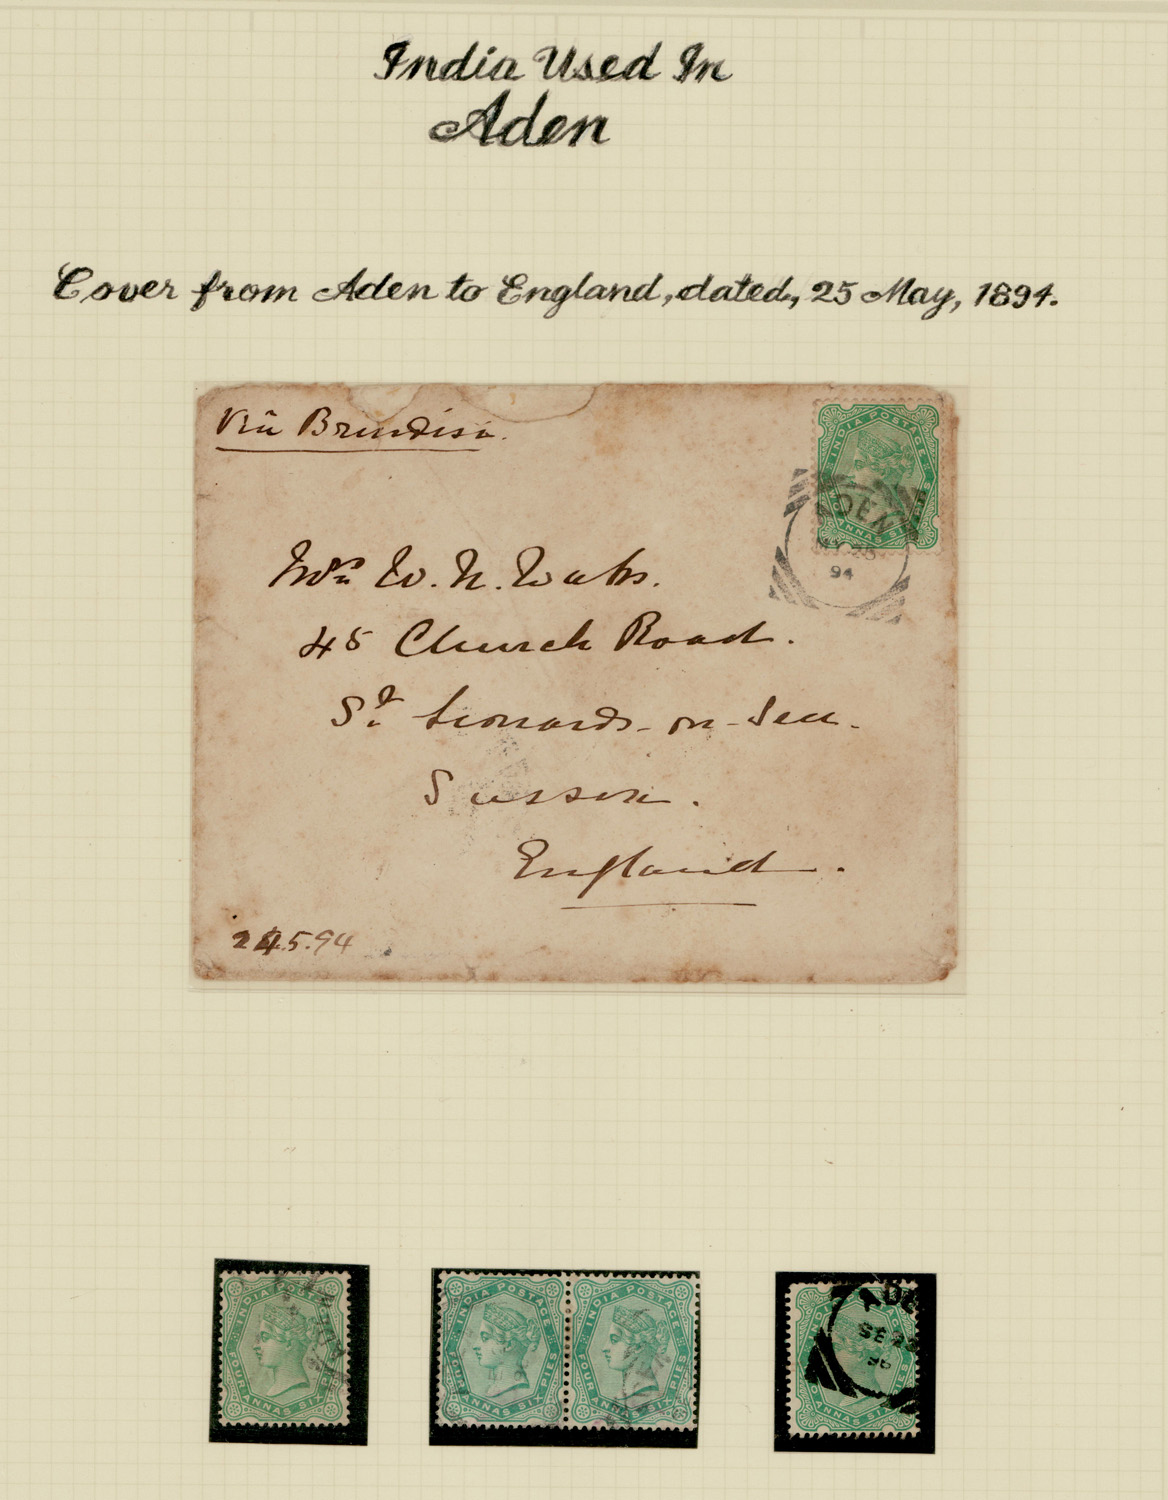 India Used In
Aden
Cover from Aden to England, dated, 25 May, 1894.
Via Brindisi.
INDIA POSTAGE
TWO ANNAS SIX PIES
ADEN
MY 25
94
Mrs W. N.
45 Church Road.
St Leonards-on-Sea.
Sussex.
England.
24.5.94
INDIA POSTAGE
FOUR ANNAS SIX PIES
INDIA POSTAGE
FOUR ANNAS SIX PIES
INDIA POSTAGE
FOUR ANNAS SIX PIES
ADE
SE 23
96
ANNAS SIX